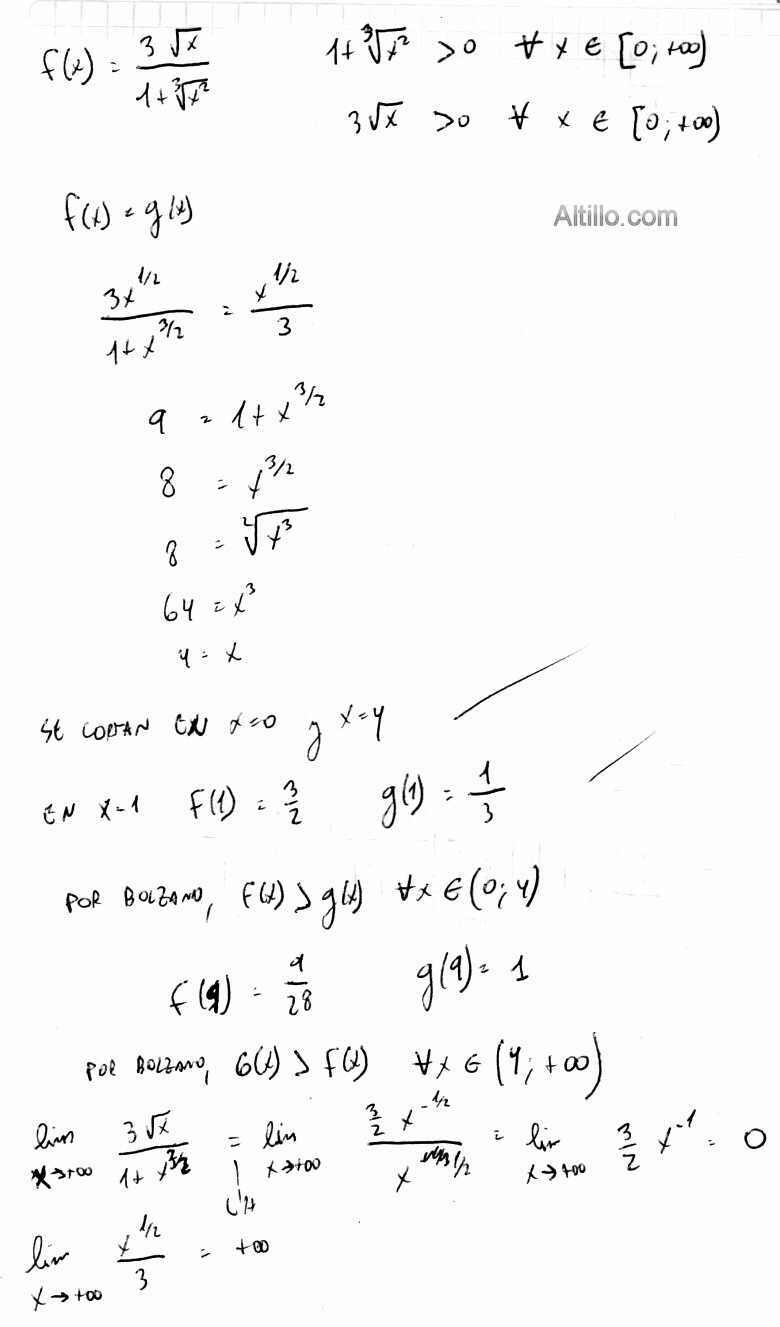 f(x) = 3√x / (1+∛x²)    1+∛x² >0 ∀ x ∈ [0;+∞)
3√x >0 ∀ x ∈ [0;+∞)
f(x) = g(x)
Altillo.com
3x^1/2 / (1+x^3/2) = x^1/2 / 3
9 = 1+x^3/2
8 = x^3/2
8 = ²√x³
64 = x³
4 = x
SE CORTAN EN x=0 y x=4
EN x=1 f(1) = 3/2 g(1) = 1/3
POR BOLZANO, f(x) > g(x) ∀x ∈ (0;4)
f(9) = 9/28 g(9) = 1
POR BOLZANO, G(x) > f(x) ∀x ∈ (4;+∞)
lim x→+∞ 3√x / (1+x^3/2) = L'H lim x→+∞ 3/2 x^-1/2 / x^1/2 = lim x→+∞ 3/2 x^-1 = 0
lim x→+∞ x^1/2 / 3 = +∞